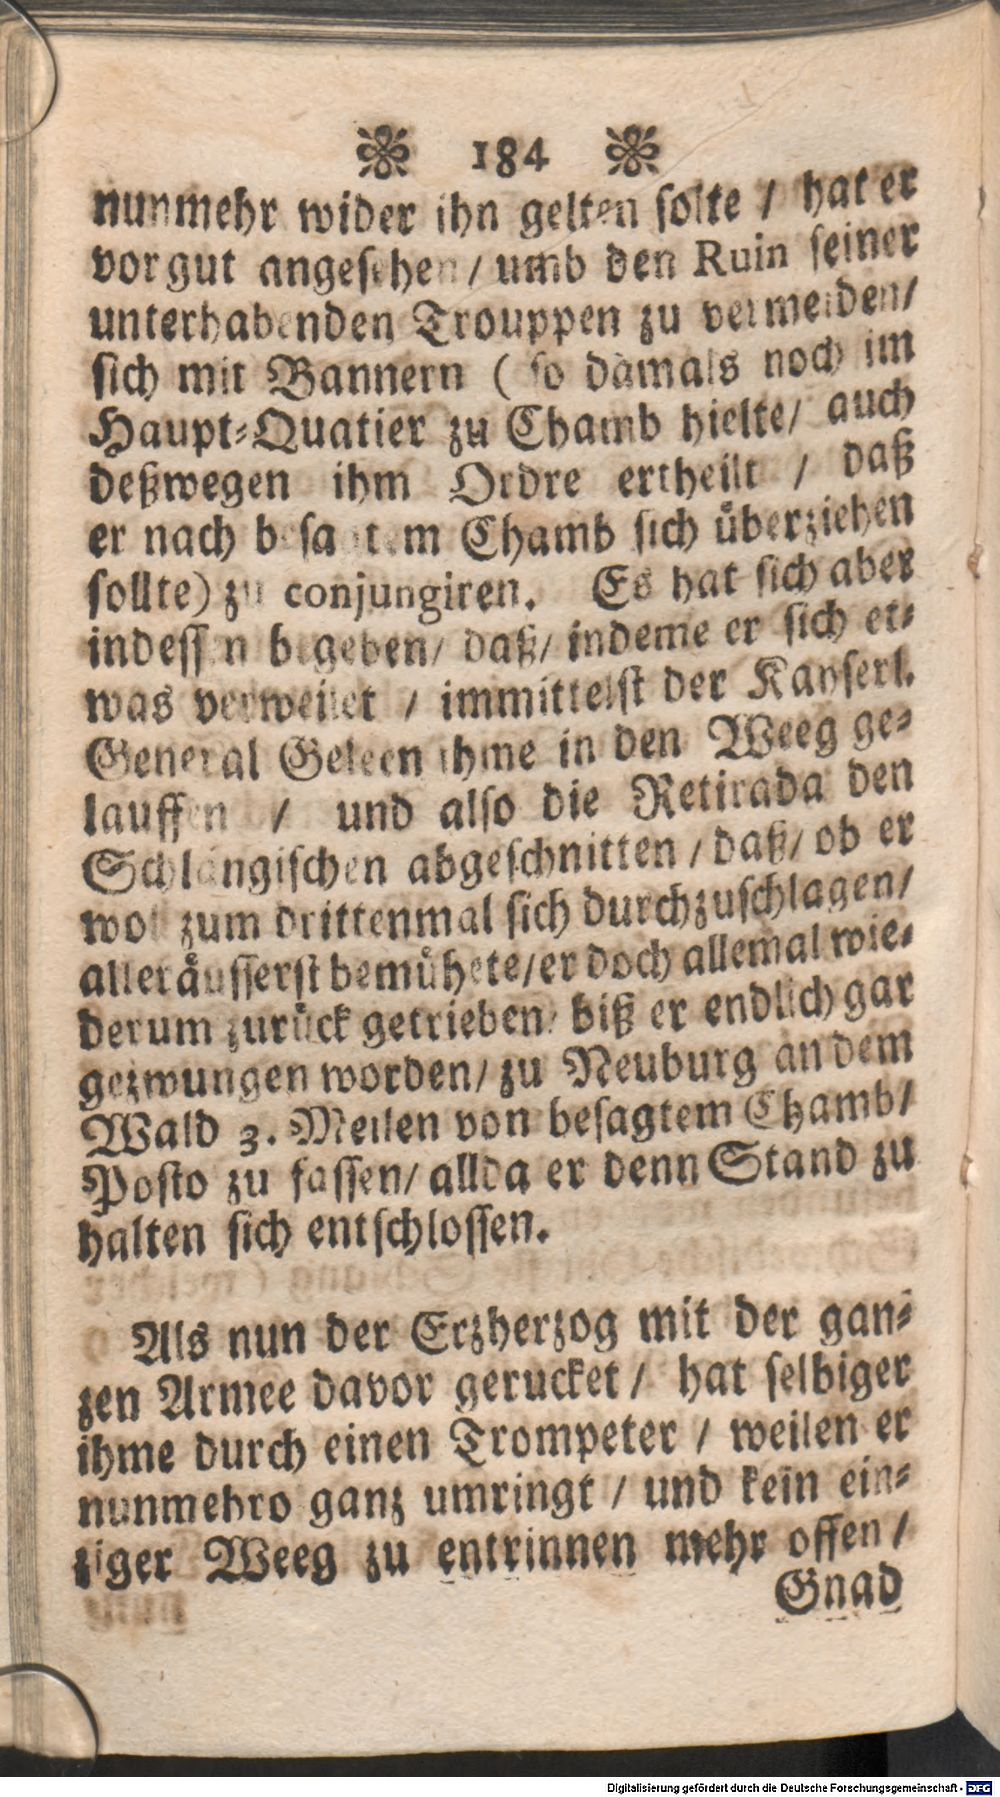 184
nunmehr wider ihn gelten solte / hat er
vor gut angesehen / umb den Ruin seiner
unterhabenden Trouppen zu vermeiden/
sich mit Bannern ( so damals noch im
Haupt-Quatier zu Chamb hielte/ auch
deßwegen ihm Ordre ertheilt / daß
er nach besagtem Chamb sich überziehen
sollte) zu conjungiren. Es hat sich aber
indessen begeben/ daß/ indeme er sich et-
was verweilet / immittelst der Kayserl.
General Geleen ihme in den Weeg ge-
lauffen / und also die Retirada den
Schlängischen abgeschnitten / daß/ ob er
wol zum drittenmal sich durchzuschlagen/
alleräusserst bemühete/er doch allemal wie-
derum zurück getrieben/ biß er endlich gar
gezwungen worden/ zu Neuburg an dem
Wald 3. Meilen von besagtem Chamb/
Posto zu fassen/ allda er denn Stand zu
halten sich entschlossen.
Als nun der Erzherzog mit der gan-
zen Armee davor gerucket / hat selbiger
ihme durch einen Trompeter / weilen er
nunmehro ganz umringt / und kein ein-
ziger Weeg zu entrinnen mehr offen /
Gnad
Digitalisierung gefördert durch die Deutsche Forschungsgemeinschaft - DFG